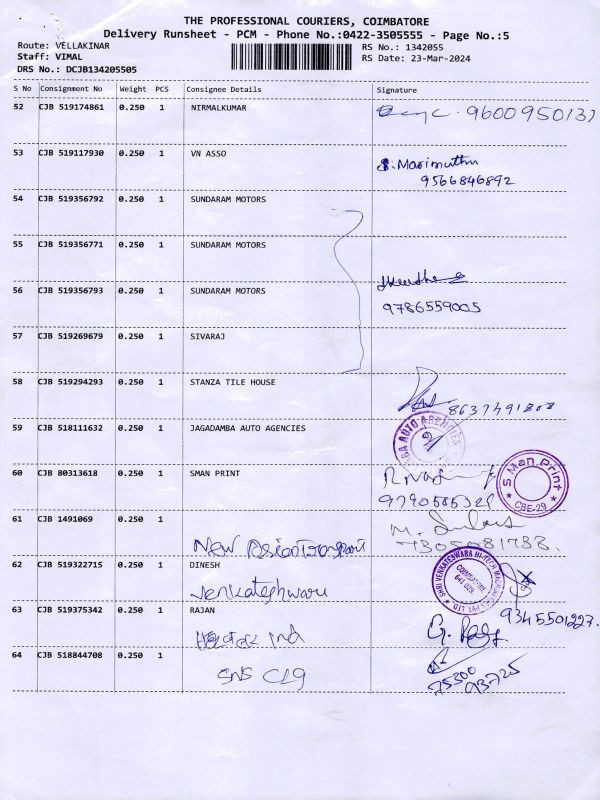 THE PROFESSIONAL COURIERS, COIMBATORE
Delivery Runsheet - PCM - Phone No.:0422-3505555 - Page No.:5
Route: VELLAKINAR
Staff: VIMAL
DRS No.: DCJB134205505
RS No.: 1342055
RS Date: 23-Mar-2024
S No Consignment No Weight PCS Consignee Details Signature
52 CJB 519174861 0.250 1 NIRMALKUMAR
53 CJB 519117930 0.250 1 VN ASSO
S. Marimuthu
9566846892
54 CJB 519356792 0.250 1 SUNDARAM MOTORS
55 CJB 519356771 0.250 1 SUNDARAM MOTORS
56 CJB 519356793 0.250 1 SUNDARAM MOTORS
9786559005
57 CJB 519269679 0.250 1 SIVARAJ
58 CJB 519294293 0.250 1 STANZA TILE HOUSE
59 CJB 518111632 0.250 1 JAGADAMBA AUTO AGENCIES
AUTO AGENCIES
60 CJB 80313618 0.250 1 SMAN PRINT
S Man Print
CBE-29
61 CJB 1491069 0.250 1
New Asian Transport
62 CJB 519322715 0.250 1 DINESH
Venkateshwara
SHRI VENKATESWARA HI-TECH
COIMBATORE
63 CJB 519375342 0.250 1 RAJAN
9345501227
Ind
64 CJB 518844708 0.250 1
SNS Clg
75300
93725